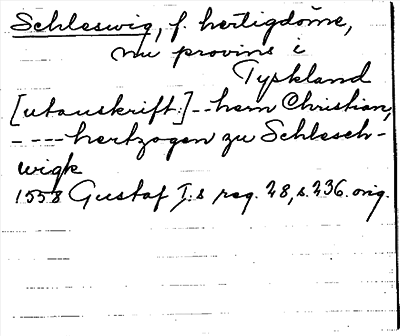 Schleswig, f. hertigdöme,
nu provins i
Tyskland
[utanskrift.] - - hern Christian,
- - - - hertzogen zu Schlesch-
wigk
1558 Gustaf I:s reg. 28, s. 236. orig.